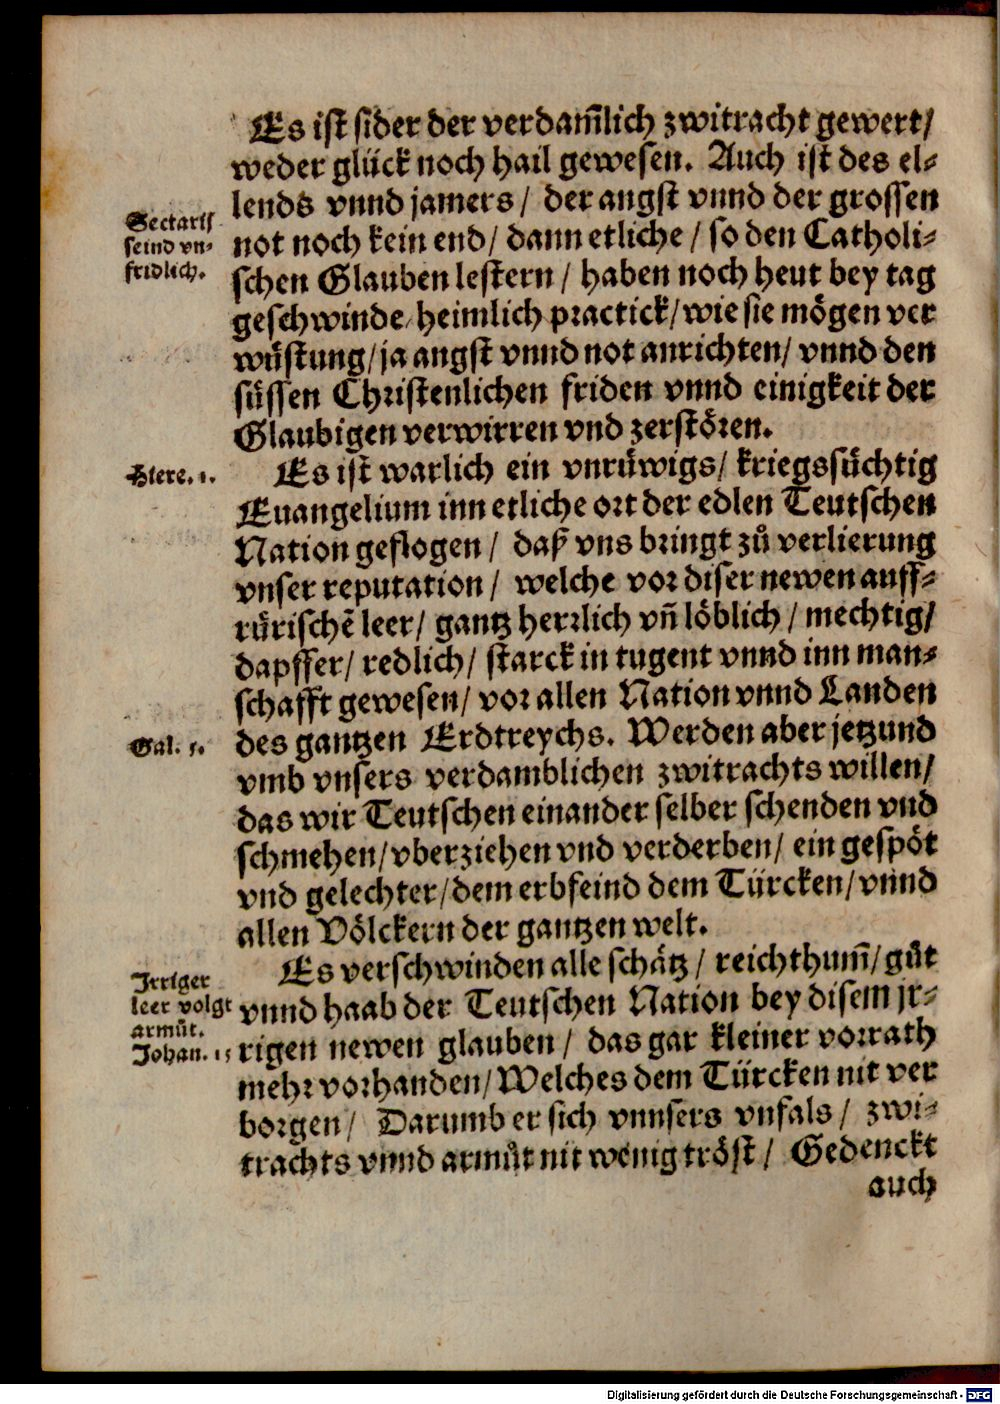 Es ist sider der verdam̃lich zwitracht gewert/
weder glück noch hail gewesen. Auch ist des el-
lends vnnd jamers/ der angst vnnd der grossen
Sectarij
seind vn-
fridlich.
not noch kein end/ dann etliche/ so den Catholi-
schen Glauben lestern/ haben noch heut bey tag
geschwinde/ heimlich practick/ wie sie mögen ver
wůstung/ ja angst vnnd not anrichten/ vnnd den
süssen Christenlichen friden vnnd einigkeit der
Glaubigen verwirren vnd zerstören.
Hiere. 1.
Es ist warlich ein vnrüwigs/ kriegssüchtig
Euangelium inn etliche ort der edlen Teutschen
Nation geflogen/ daß vns bringt zů verlierung
vnser reputation/ welche vor diser newen auff-
rürischẽ leer/ gantz herrlich vñ löblich/ mechtig/
dapffer/ redlich/ starck in tugent vnnd inn man-
schafft gewesen/ vor allen Nation vnnd Landen
Gal. 5.
des gantzen Erdtreychs. Werden aber jetzund
vmb vnsers verdamblichen zwitrachts willen/
das wir Teutschen einander selber schenden vnd
schmehen/ vberziehen vnd verderben/ ein gespöt
vnd gelechter/ dem erbfeind dem Türcken/ vnnd
allen Völckern der gantzen welt.
Es verschwinden alle schätz/ reichthum̃/ gůt
Irriger
leer volgt
armůt.
Johan. 15
vnnd haab der Teutschen Nation bey disem jr-
rigen newen glauben/ das gar kleiner vorrath
mehr vorhanden/ Welches dem Türcken nit ver
borgen/ Darumb er sich vnnsers vnfals/ zwi-
trachts vnnd armůt nit wenig tröst/ Gedenckt
auch
Digitalisierung gefördert durch die Deutsche Forschungsgemeinschaft - DFG